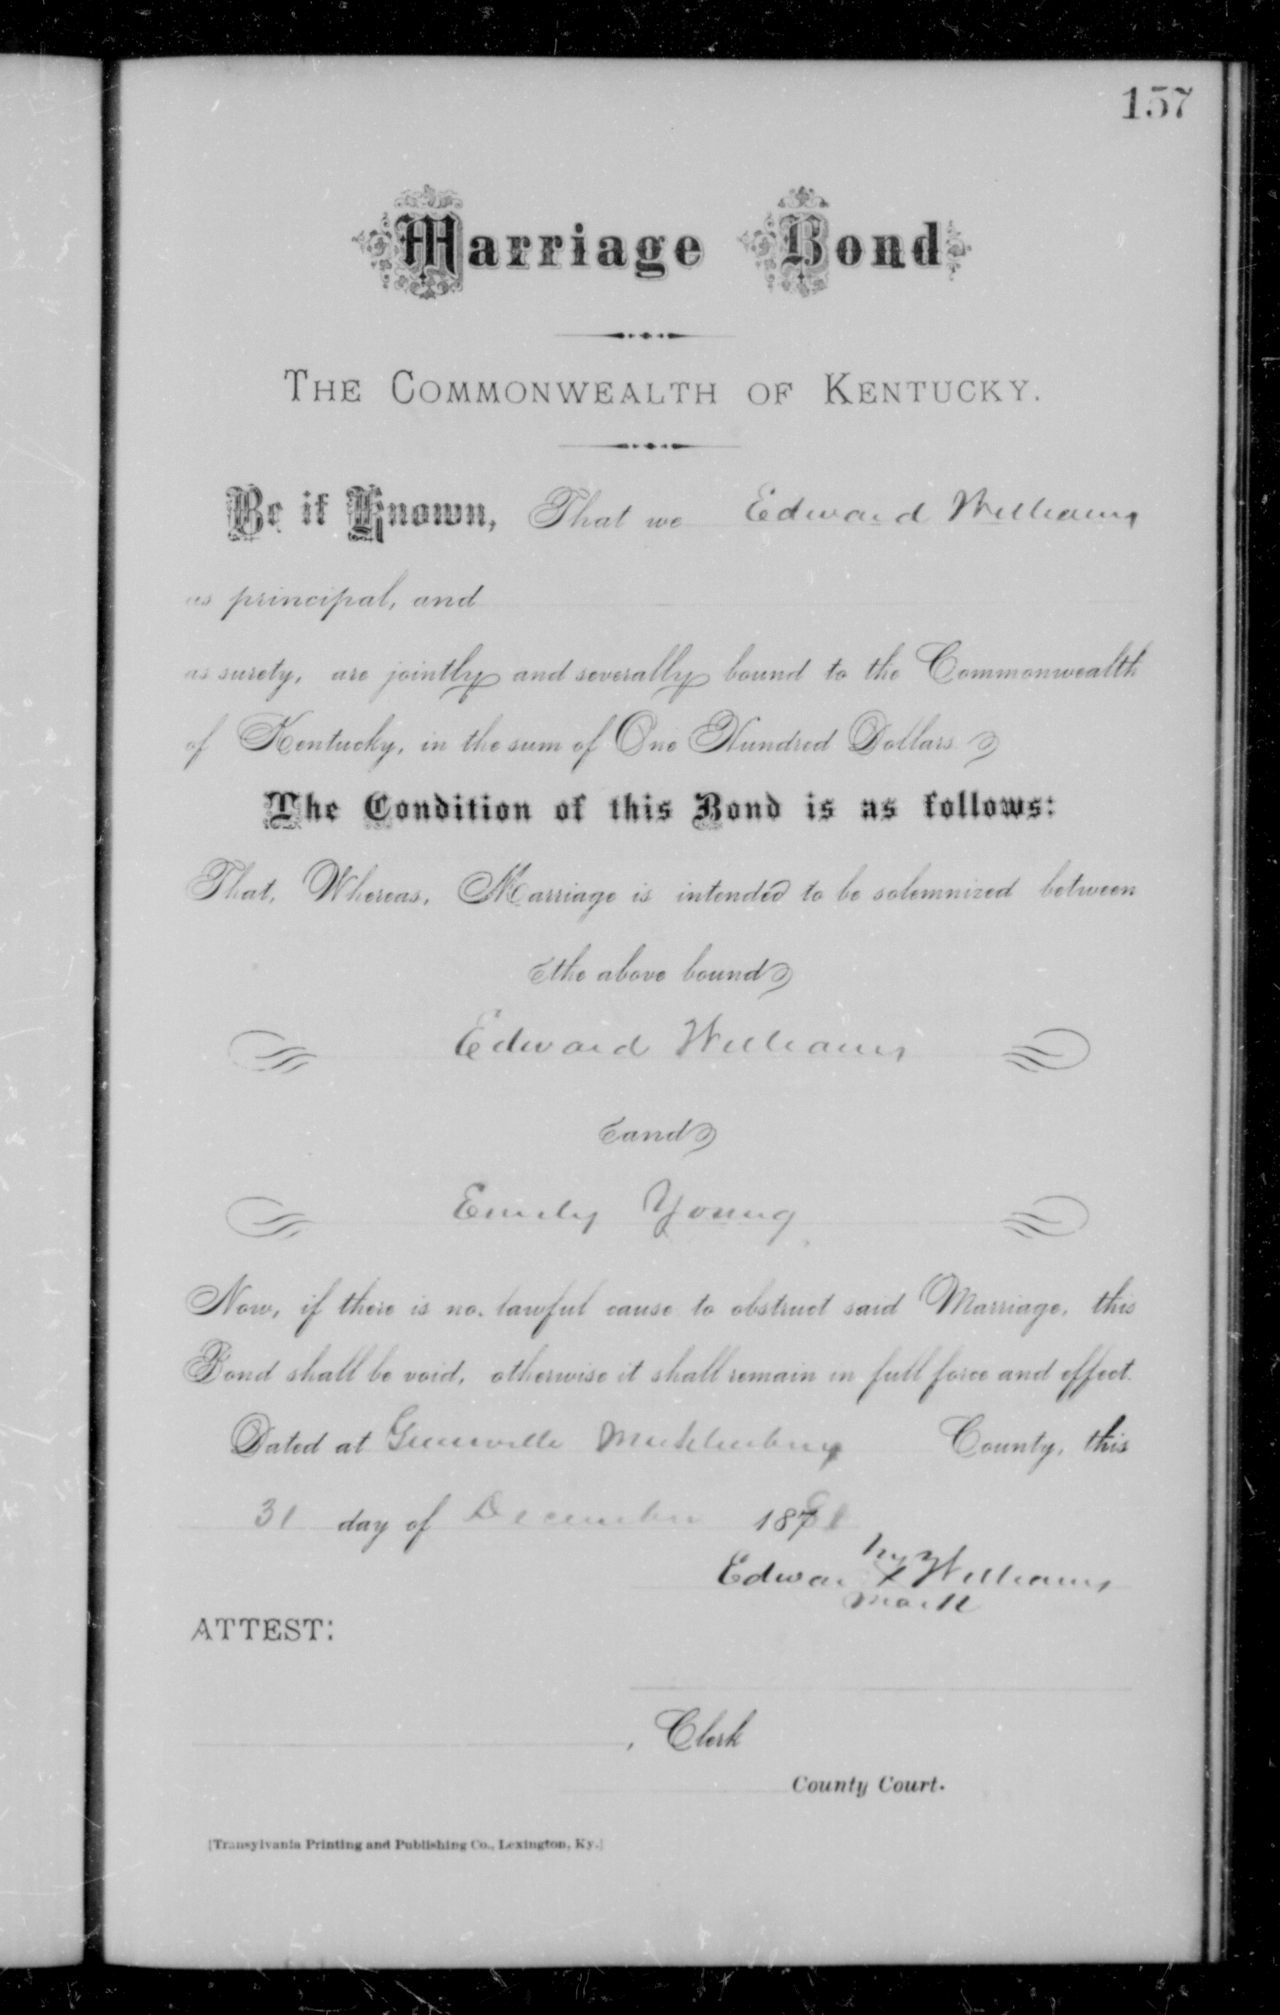 157
Marriage Bond
THE COMMONWEALTH OF KENTUCKY.
Be it Known, That we Edward Williams
as principal, and
as surety, are jointly and severally bound to the Commonwealth
of Kentucky, in the sum of One Hundred Dollars
The Condition of this Bond is as follows:
That, Whereas, Marriage is intended to be solemnized between
the above bound
Edward Williams
and
Emily Young
Now, if there is no lawful cause to obstruct said Marriage, this
Bond shall be void, otherwise it shall remain in full force and effect.
Dated at Greenville Muhlenburg County, this
31 day of December 1881
his
Edward X Williams
mark
ATTEST:
, Clerk
County Court.
[Transylvania Printing and Publishing Co., Lexington, Ky.]